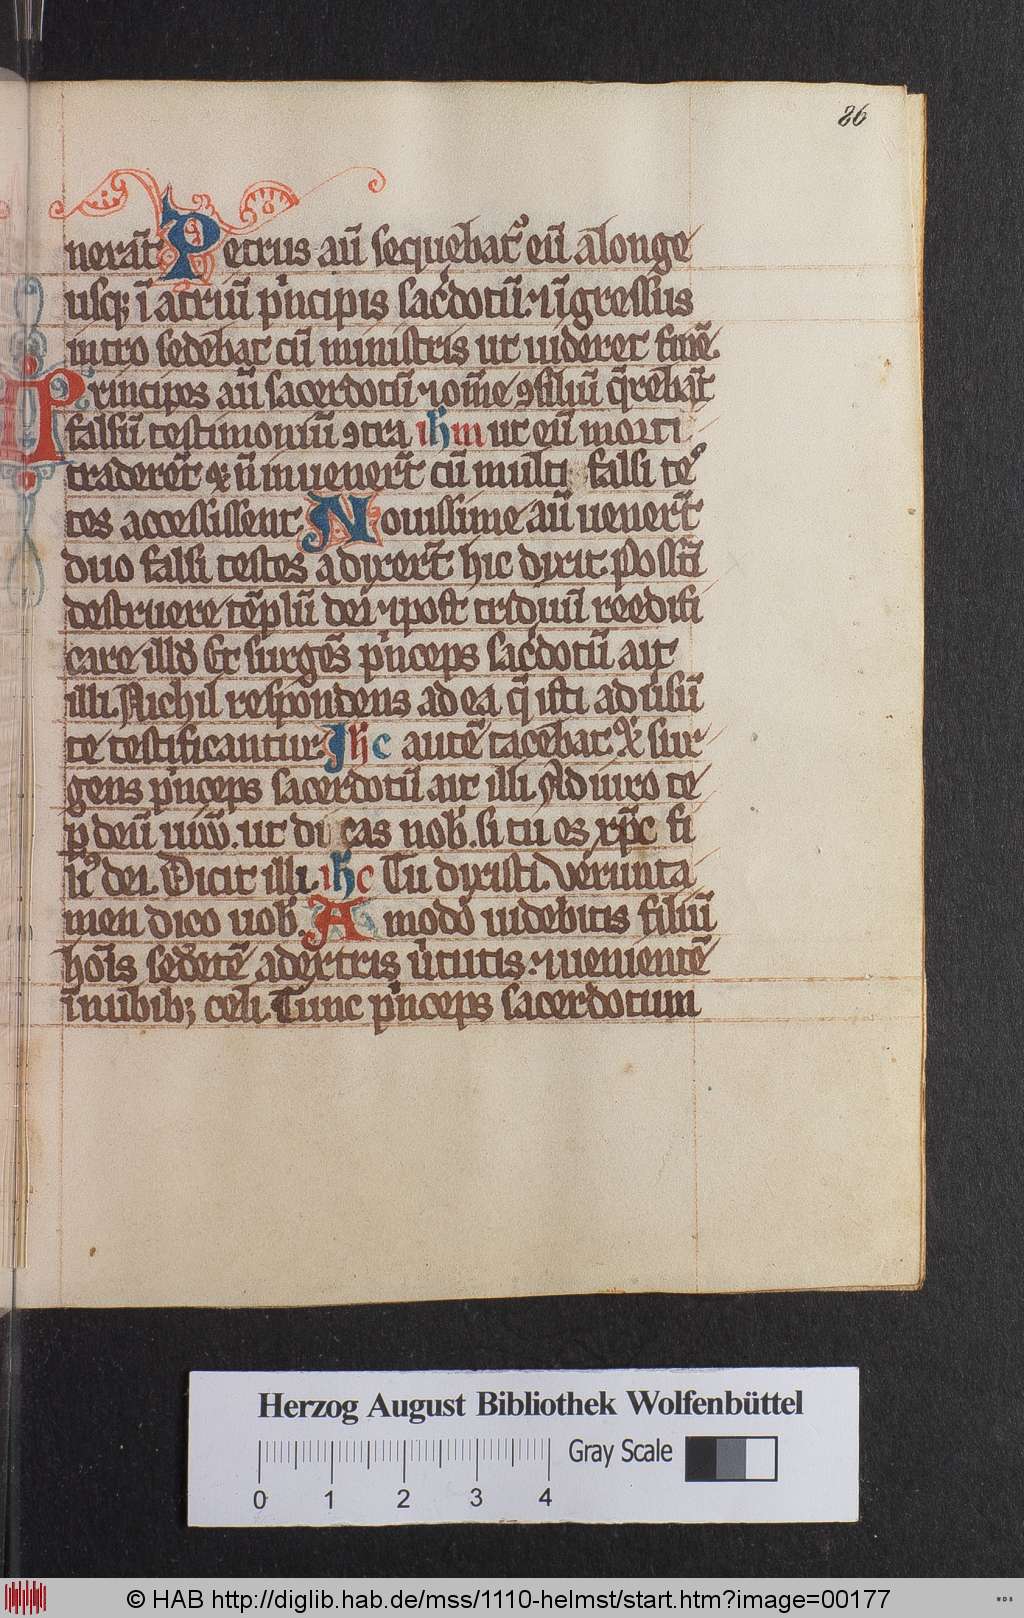 86
uerāt Petrus aū sequebat᷑ eū a longe
usq; ī atriū p̓ncipis sac̓dotū. ⁊ īgressus
intro sedebat cū ministris ut uideret finē.
Principes aū sacerdotū ⁊ om̄e ꝯsiliū q̄rebāt
falsū testimoniū ꝯtra ihm ut eū morti
traderēt & n̄ inuener̄t cū multi falsi tes
tes accessissent Nouissime aū uener̄t
duo falsi testes ⁊ dixer̄t hic dixit. Possū
destruere tēplū dei ⁊ post triduū reedifi
care illđ Et surgēs p̓nceps sac̓dotū ait
illi. Nichil respondens ad ea q̄ isti adūsū
te testificantur Jhc autē tacebat. & sur
gens p̓nceps sacerdotū ait illi. Adiuro te
p deū uiuū. ut dicas nob̓. si tu es xp̄c fi
li᷒ dei. Dicit illi. ihc Tu dixisti. Verunta
men dico uob̓. A modo uidebitis filiū
hōis sedētē a dextris ū̓tutis. ⁊ uenientē
ī nubib; celi. Tunc p̓nceps sacerdotum
Herzog August Bibliothek Wolfenbüttel
Gray Scale
0 1 2 3 4
© HAB http://diglib.hab.de/mss/1110-helmst/start.htm?image=00177